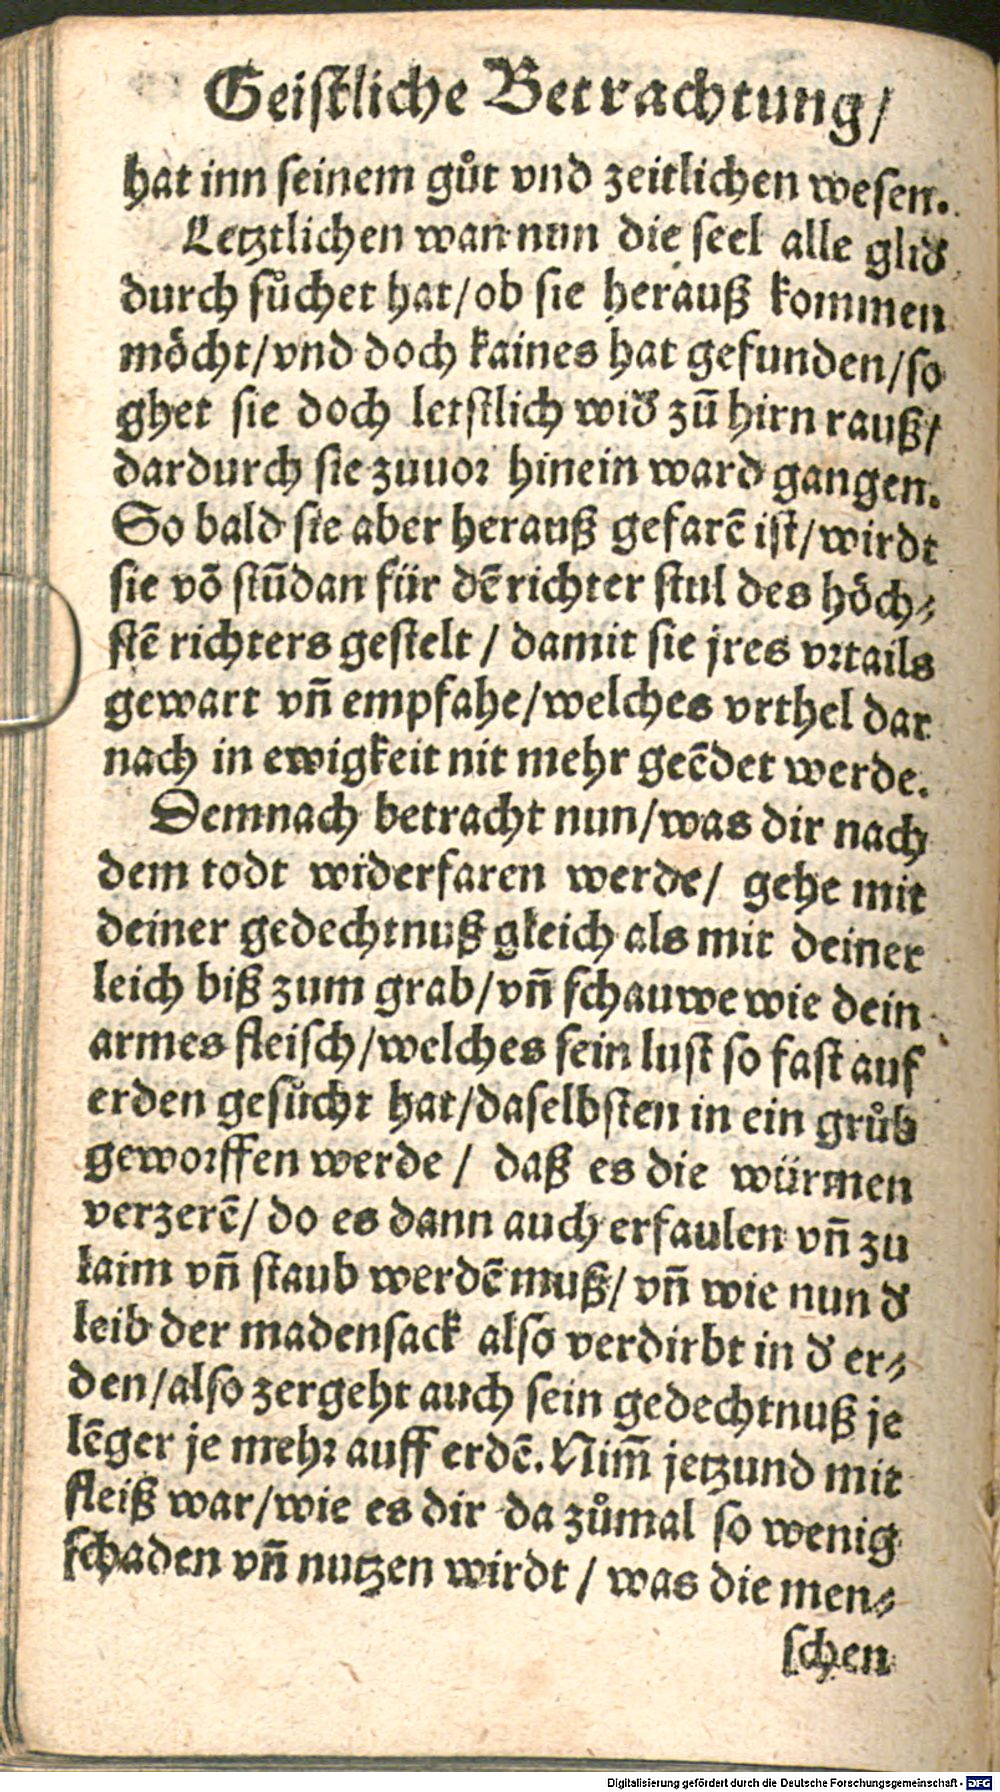 Geistliche Betrachtung/
hat inn seinem gůt vnd zeitlichen wesen.
Letztlichen wan nun die seel alle glid̕
durch sůchet hat/ob sie herauß kommen
möcht/vnd doch kaines hat gefunden/so
ghet sie doch letstlich wid̕ zů hirn rauß/
dardurch sie zuuor hinein ward gangen.
So bald sie aber herauß gefarē ist/wirdt
sie vō stūdan für dē richter stul des höch⸗
stē richters gestelt / damit sie jres vrtails
gewart vñ empfahe/welches vrthel dar
nach in ewigkeit nit mehr geēdet werde.
Demnach betracht nun/was dir nach
dem todt widerfaren werde/ gehe mit
deiner gedechtnuß gleich als mit deiner
leich biß zum grab/vñ schauwe wie dein
armes fleisch/welches sein lust so fast auf
erden gesůcht hat/daselbsten in ein grůb
geworffen werde / daß es die würmen
verzerē/ do es dann auch erfaulen vñ zu
kaim vñ staub werdē muß/ vñ wie nun d̕
leib der madensack also verdirbt in d̕ er⸗
den/also zergeht auch sein gedechtnuß je
lēger je mehr auff erdē. Nim̄ jetzund mit
fleiß war/wie es dir da zůmal so wenig
schaden vñ nutzen wirdt / was die men⸗
schen
Digitalisierung gefördert durch die Deutsche Forschungsgemeinschaft - DFG